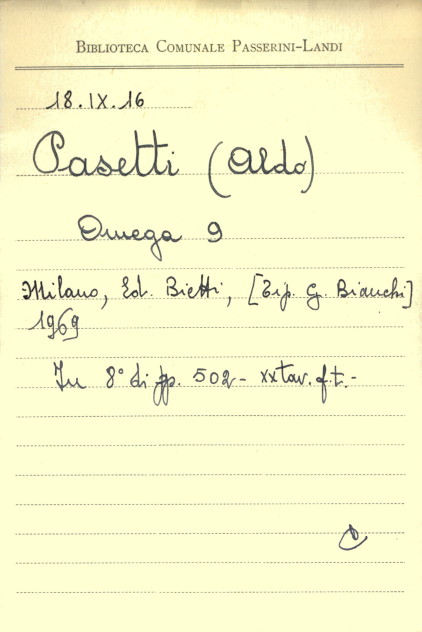 BIBLIOTECA COMUNALE PASSERINI-LANDI
18.IX.16
Pasetti (Aldo)
Omega 9
Milano, Ed. Bietti, [Tip. G. Bianchi]
1969
In 8° di pp. 502 - xx tav. f.t. -